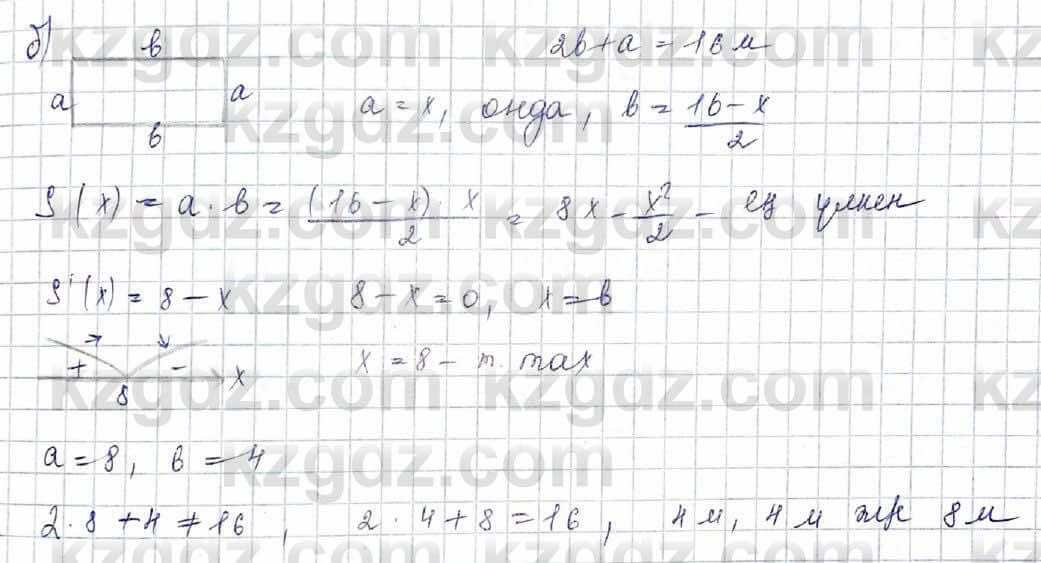 б) в 2в+a = 16 м
a a a = x, онда, в = (16-x)/2
в
S(x) = a·в = ((16-x)·x)/2 = 8x - x²/2 - ең үлкен
S'(x) = 8-x 8-x=0, x=8
+ - x x = 8 - т. max
8
a=8, в=4
2·8+4≠16, 2·4+8=16, 4 м, 4 м жғе 8 м
kzgdz.com